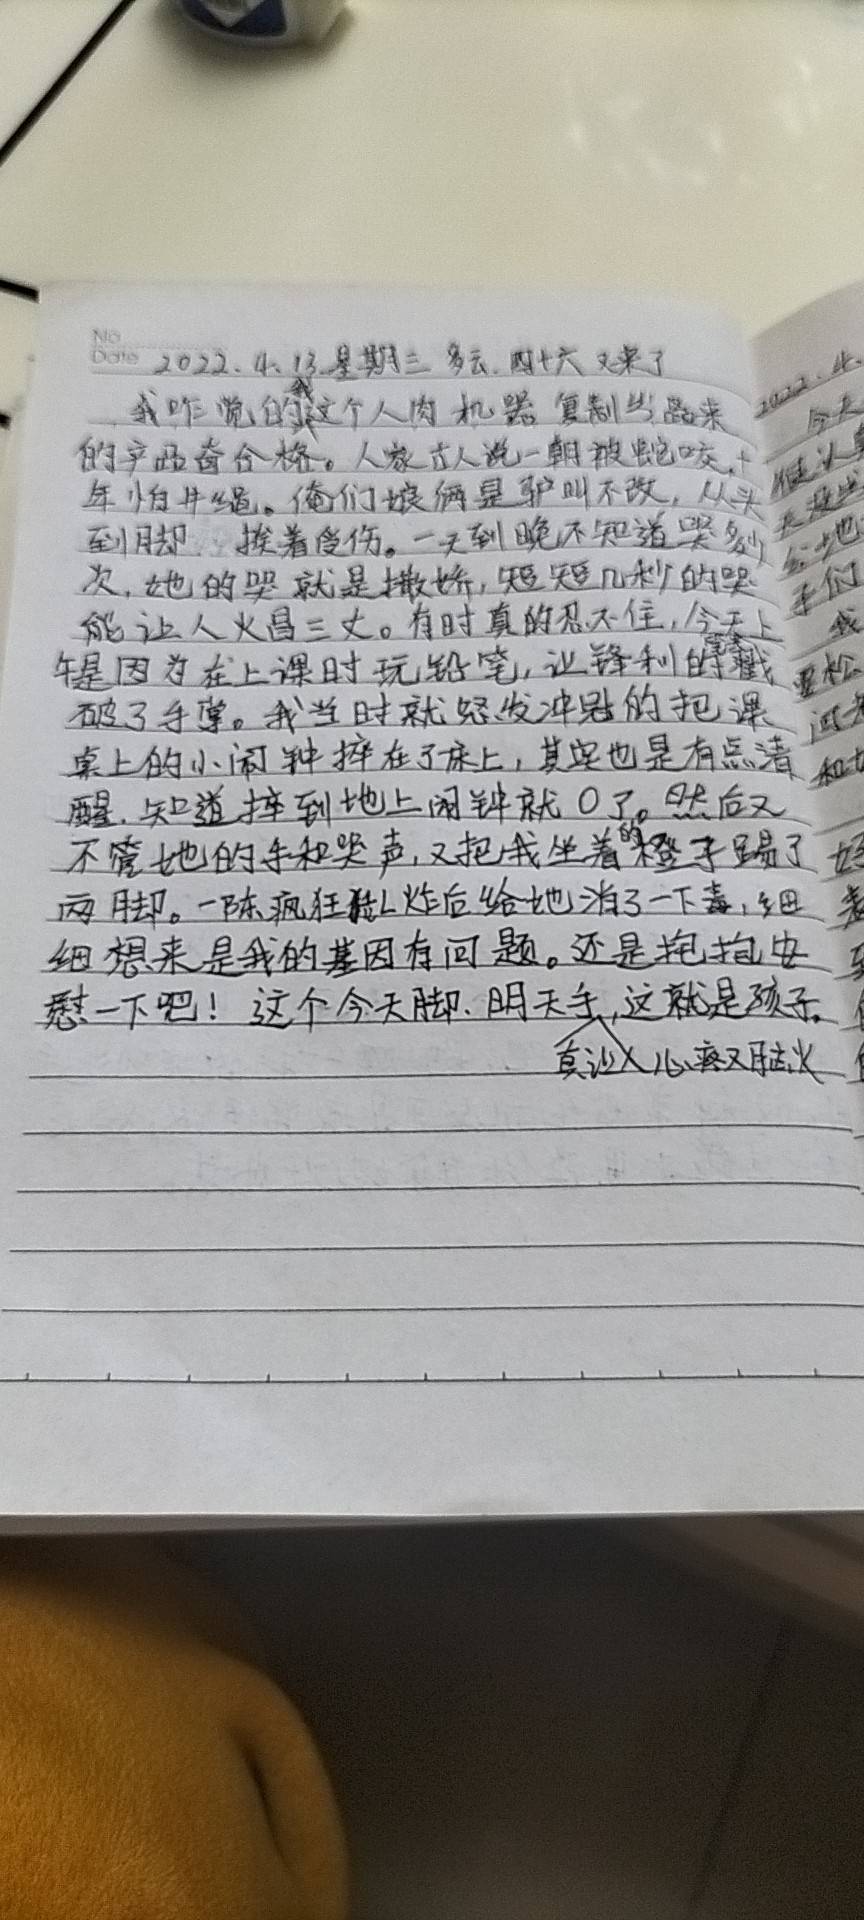 No
Date 2022.4.13.星期三 多云.四十六 又来了
我咋觉的我这个人肉机器复制出来
的产品奋合格。人家古人说一朝被蛇咬,十
年怕井绳。俺们娘俩是驴叫不改,从头
到脚 挨着受伤。一天到晚不知道哭多少
次,她的哭就是撒娇,短短几秒的哭
能让人火冒三丈。有时真的忍不住,今天上
午是因为在上课时玩铅笔,让锋利的笔戳
破了手掌。我当时就怒发冲冠的把课
桌上的小闹钟摔在了床上,其实也是有点清
醒.知道摔到地上闹钟就0了。然后又
不管她的手和哭声,又把我坐着的橙子踢了
两脚。一陈疯狂 炸后给她消了一下毒,细
细想来是我的基因有问题。还是抱抱安
慰一下吧!这个今天脚.明天手,这就是孩子。
真让人心疼又脑火
2022.4.
今天
我
和